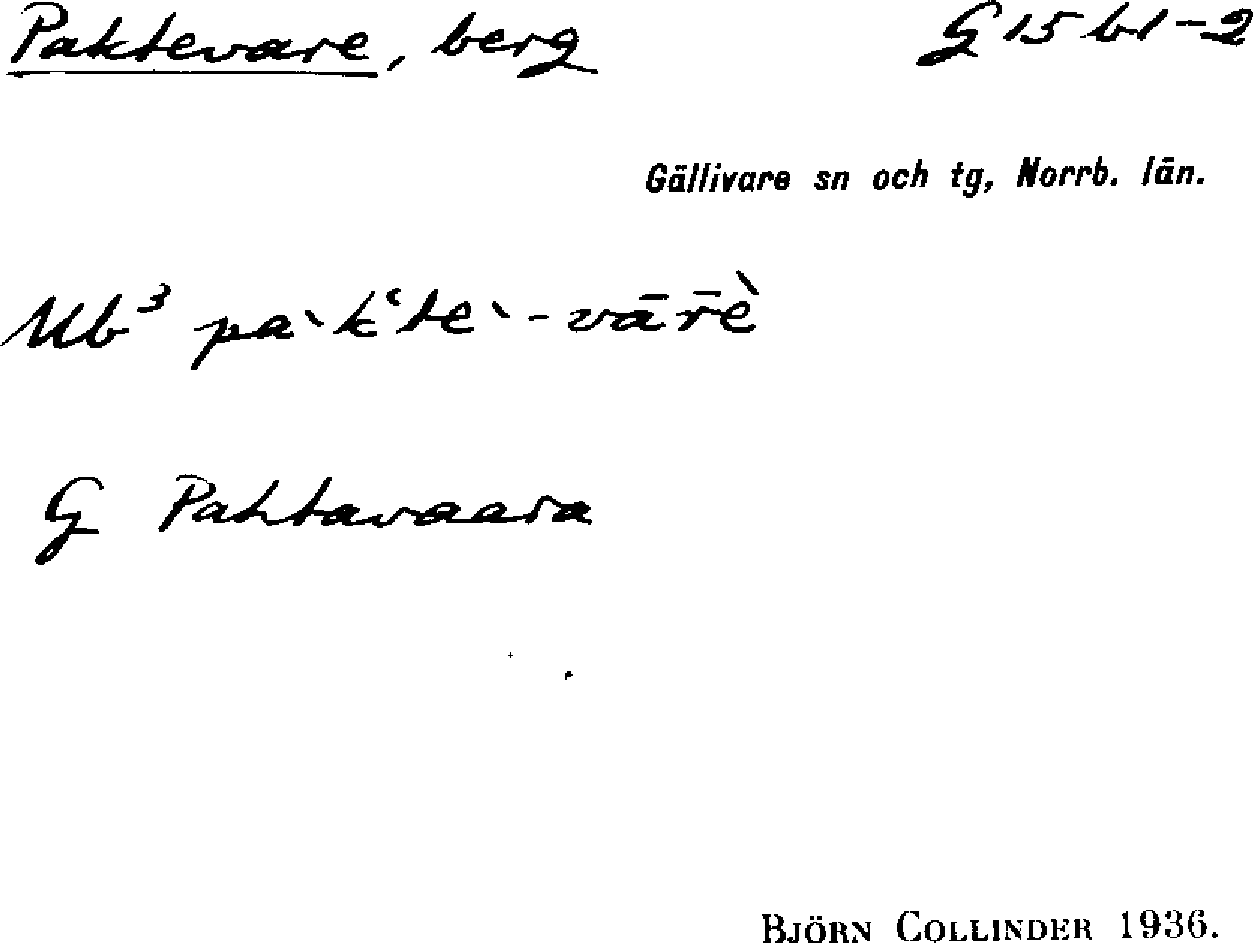 Paktevare, berg G 15 b1-2
Gällivare sn och tg, Norrb. län.
Ub³ pa`kʿte`-vār̄ὲ
G Pahtavaara
BJÖRN COLLINDER 1936.